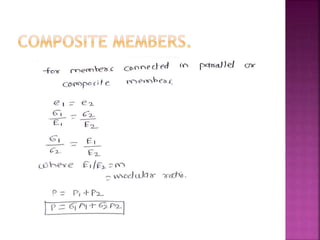 COMPOSITE MEMBERS.
for members connected in parallel or
composite members
e1 = e2
σ1/E1 = σ2/E2
σ1/σ2 = E1/E2
where E1/E2 = m
= modular ratio.
P = P1 + P2
P = σ1A1 + σ2A2